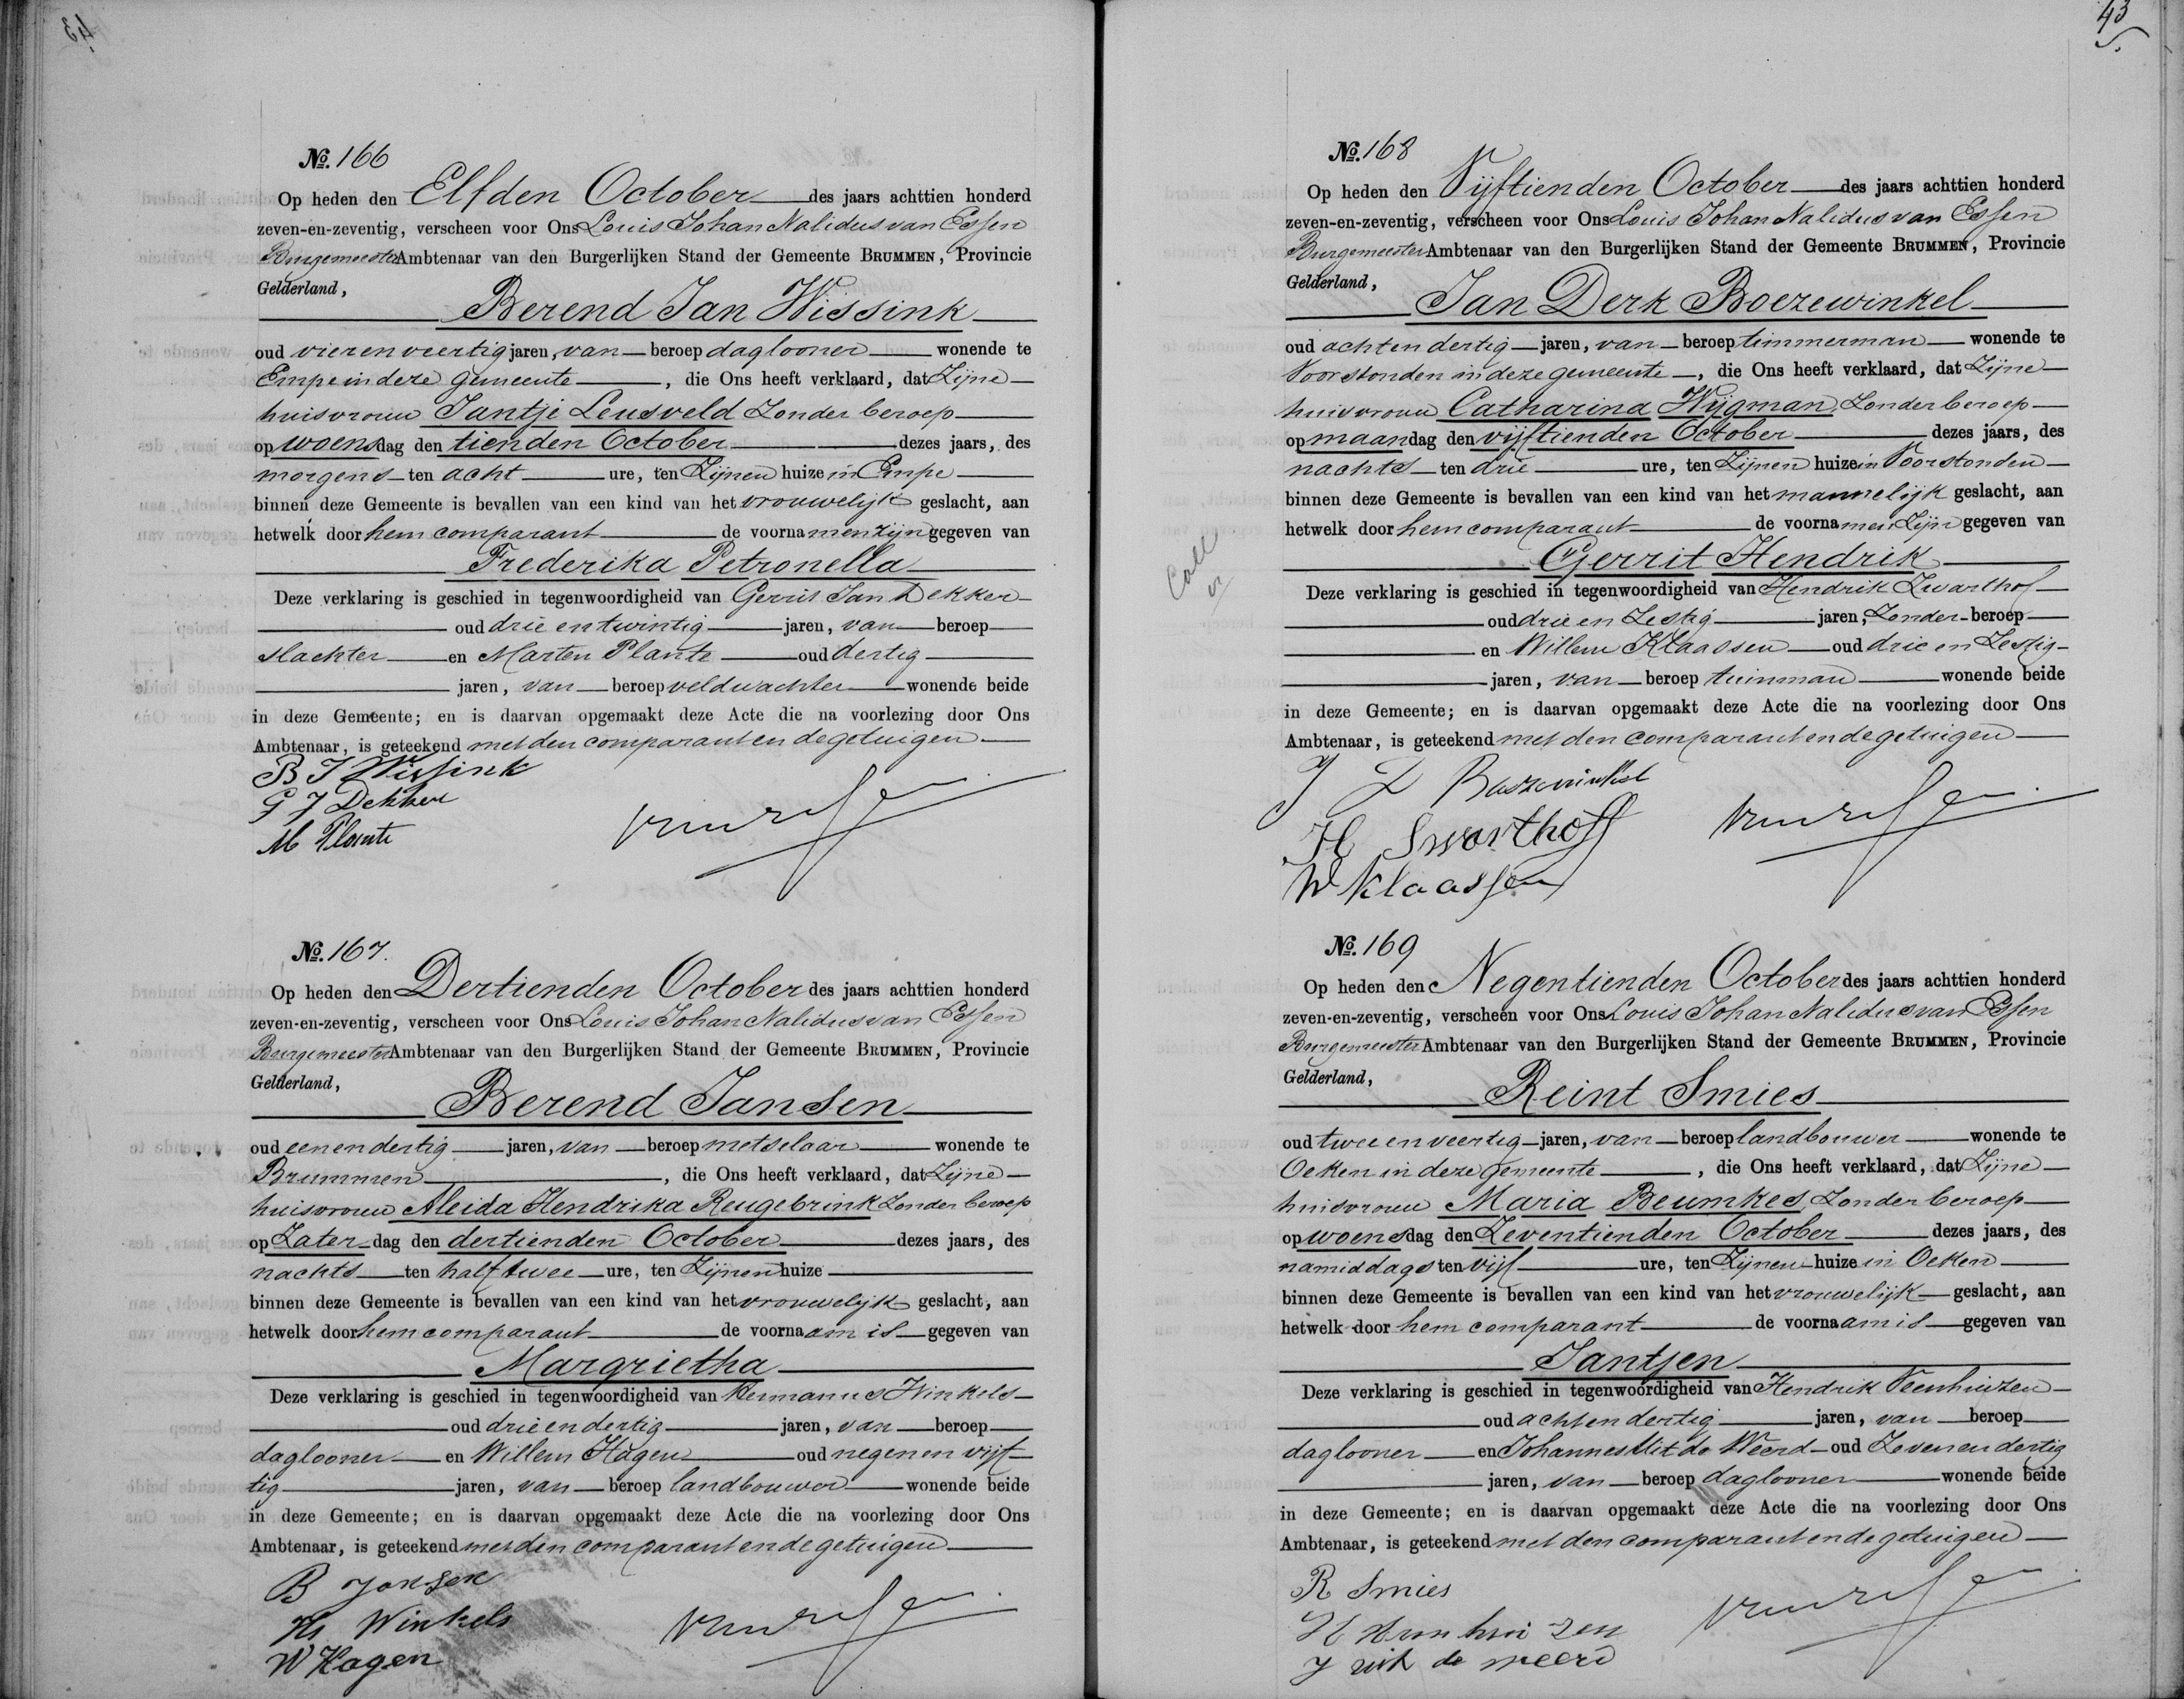 43
No. 166
Op heden den Elfden October des jaars achttien honderd
zeven-en-zeventig, verscheen voor Ons Louis Johan Nalidus van Essen
Burgemeester Ambtenaar van den Burgerlijken Stand der Gemeente BRUMMEN, Provincie
Gelderland,
Berend Jan Wissink
oud vierenveertig jaren, van beroep daglooner wonende te
Empe in deze gemeente, die Ons heeft verklaard, dat Zijne
huisvrouw Jantje Leusveld Zonder beroep
op woensdag den tienden October dezes jaars, des
morgens ten acht ure, ten Zijnen huize in Empe
binnen deze Gemeente is bevallen van een kind van het vrouwelijk geslacht, aan
hetwelk door hem comparant de voornamen zijn gegeven van
Frederika Petronella
Deze verklaring is geschied in tegenwoordigheid van Gerrit Jan Dekker
oud drie entwintig jaren, van beroep
slachter en Marten Plante oud dertig
jaren, van beroep veldwachter wonende beide
in deze Gemeente; en is daarvan opgemaakt deze Acte die na voorlezing door Ons
Ambtenaar, is geteekend met den comparant en de getuigen
B J Wissink
G J Dekker
M Plante
No. 167.
Op heden den Dertienden October des jaars achttien honderd
zeven-en-zeventig, verscheen voor Ons Louis Johan Nalidus van Essen
Burgemeester Ambtenaar van den Burgerlijken Stand der Gemeente BRUMMEN, Provincie
Gelderland,
Berend Jansen
oud eenendertig jaren, van beroep metselaar wonende te
Brummen, die Ons heeft verklaard, dat Zijne
huisvrouw Aleida Hendrika Reugebrink Zonder beroep
op Zaterdag den dertienden October dezes jaars, des
nachts ten half twee ure, ten Zijnen huize
binnen deze Gemeente is bevallen van een kind van het vrouwelijk geslacht, aan
hetwelk door hem comparant de voornaam is gegeven van
Margrietha
Deze verklaring is geschied in tegenwoordigheid van Hermanus Winkels
oud drieendertig jaren, van beroep
daglooner en Willem Hagen oud negenen vijf-
tig jaren, van beroep landbouwer wonende beide
in deze Gemeente; en is daarvan opgemaakt deze Acte die na voorlezing door Ons
Ambtenaar, is geteekend met den comparant en de getuigen
B Jansen
Hs Winkels
W Hagen
43
No. 168
Op heden den Vijftienden October des jaars achttien honderd
zeven-en-zeventig, verscheen voor Ons Louis Johan Nalidus van Essen
Burgemeester Ambtenaar van den Burgerlijken Stand der Gemeente BRUMMEN, Provincie
Gelderland,
Jan Derk Boezewinkel
oud achtendertig jaren, van beroep timmerman wonende te
Voorstonden in deze gemeente, die Ons heeft verklaard, dat Zijne
huisvrouw Catharina Wijgman Zonder beroep
op maandag den vijftienden October dezes jaars, des
nachts ten drie ure, ten Zijnen huize in Voorstonden
binnen deze Gemeente is bevallen van een kind van het mannelijk geslacht, aan
hetwelk door hem comparant de voornamen Zijn gegeven van
Gerrit Hendrik
Deze verklaring is geschied in tegenwoordigheid van Hendrik Zwarthof
oud drie en Zestig jaren, Zonder beroep
en Willem Klaassen oud drie en Zestig
jaren, van beroep tuinman wonende beide
in deze Gemeente; en is daarvan opgemaakt deze Acte die na voorlezing door Ons
Ambtenaar, is geteekend met den comparant en de getuigen
J D Buszewinkel
H Swarthoff
W Klaassen
No. 169
Op heden den Negentienden October des jaars achttien honderd
zeven-en-zeventig, verscheen voor Ons Louis Johan Nalidus van Essen
Burgemeester Ambtenaar van den Burgerlijken Stand der Gemeente BRUMMEN, Provincie
Gelderland,
Reint Smies
oud twee en veertig jaren, van beroep landbouwer wonende te
Oeken in deze gemeente, die Ons heeft verklaard, dat Zijne
huisvrouw Maria Beumkes Zonder beroep
op woensdag den Zeventienden October dezes jaars, des
namiddags ten vijf ure, ten Zijnen huize in Oeken
binnen deze Gemeente is bevallen van een kind van het vrouwelijk geslacht, aan
hetwelk door hem comparant de voornaam is gegeven van
Jantjen
Deze verklaring is geschied in tegenwoordigheid van Hendrik Veenhuizen
oud achtendertig jaren, van beroep
daglooner en Johannes Uit de Weerd oud Zevenendertig
jaren, van beroep daglooner wonende beide
in deze Gemeente; en is daarvan opgemaakt deze Acte die na voorlezing door Ons
Ambtenaar, is geteekend met den comparant en de getuigen
R Smies
J uit de weerd